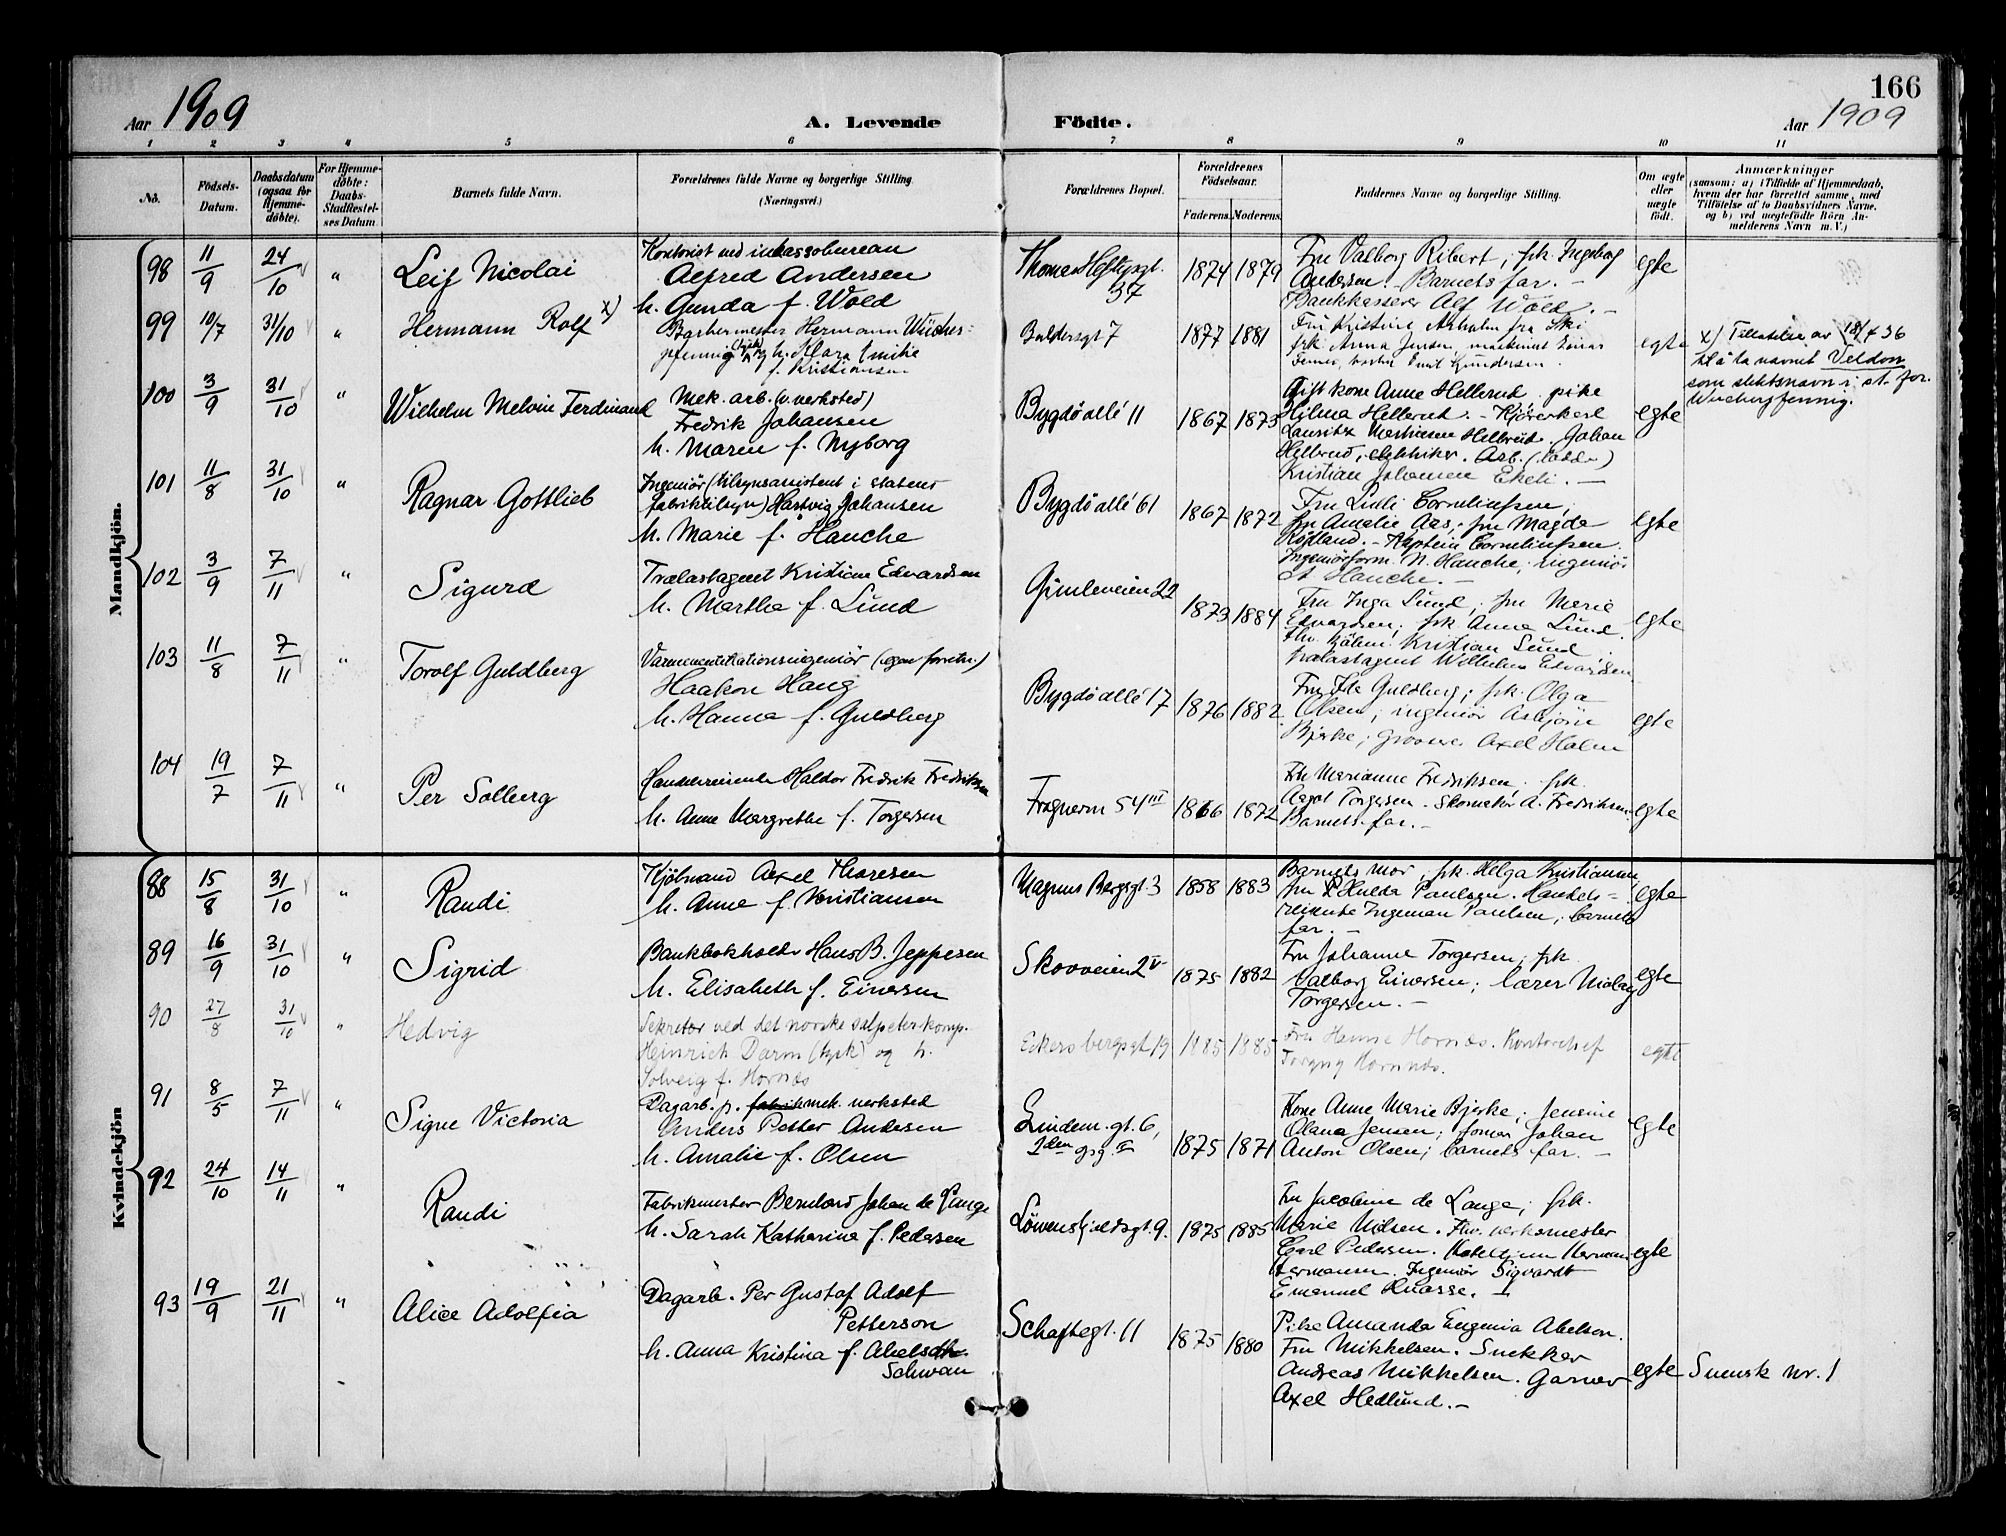 166
Aar 1909
A. Levende Födte.
Aar 1909
1 2 3 4 5 6 7 8 9 10 11
No.
Födsels-Datum.
Daabsdatum (ogsaa for Hjemmedöbte).
For Hjemmedöbte: Daabs-Stadfæstelses Datum
Barnets fulde Navn.
Forældrenes fulde Navne og borgerlige Stilling.
(Næringsvei.)
Forældrenes Bopæl.
Forældrenes Födselsaar.
Faderens. Moderens.
Faddernes Navne og borgerlige Stilling.
Om ægte eller uægte födt.
Anmærkninger
(saasom: a) i Tilfælde af Hjemmedaab,
hvem der har forrettet samme, med
Tilföielse af to Daabsvidners Navne.
og b) ved uegtefödte Börn Anmelderens Navn m.V.)
Mandkjön.
98 11/9 24/10 " Leif Nicolai
Kontorist ved inkassobureau
Alfred Andersen
h. Gunda f. Wold
Thomas Heftyesgt. 37
1874 1879
Fru Valborg Ribert; frk. Ingeborg
Andersen. Barnets far. –
Bankkasserer Alf Wold. –
egte
99 10/7 31/10 " Hermann Rolf x)
Barbermester Hermann Wücher-
pfennig (tysk) og h. Klara Emilie
f. Kristiansen
Baldersgt 7
1877 1881
Fru Kristine Asholm fra Ski
frk. Anna Jensen, maskinist Einar
egte
x) Tillatelse av 18/4 36
til å ta navnet Veldon
som slektsnavn i st. for
Wucherpfennig.
100 3/9 31/10 " Wilhelm Melvin Ferdinand
Mek. arb. (v. verksted)
Fredrik Johansen
h. Maren f. Nyborg
Bygdö allé 11
1867 1873
Gift kone Anne Hellerud, pike
Hilma Hellerud. – Kjörerkarl
Lauritz Mathiesen Hellerud. Johan
Hellerud, elektriker. Arb.
Kristian Johansen Ekeli. –
egte
101 11/8 31/10 " Ragnar Gottlieb
Ingeniör (tilsynsassistent i statens
fabriktilsyn) Hartvig Johansen
h. Marie f. Hauche
Bygdö allé 61
1867 1872
Fru Lulli Corneliussen,
fru Amalie Aas; fru Magda
Rödland. – Kaptein Corneliussen.
Ingeniörform. N. Hauche, ingeniör
Hauche. –
egte
102 3/9 7/11 " Sigurd
Trælastagent Kristian Edvardsen
h. Marthe f. Lund
Gimleveien 22
1873 1884
Fru Inga Lund; fru Marie
Edvardsen; frk. Anna Lund.
fhv. kjöbm. Kristian Lund
trælastagent Wilhelm Edvardsen
egte
103 11/8 7/11 " Torolf Guldberg
Varmeventilationsingeniör (egen forretn.)
Haakon Haug
h. Hanna f. Guldberg
Bygdö allé 17
1876 1882
Fru Ida Guldberg; frk. Olga
Olsen; ingeniör Asbjörn
Bjerke; Grosserer Axel Holm
egte
104 19/7 7/11 " Per Solberg
Handelsreisende Haldor Fredrik Fredriksen
h. Anne Margrethe f. Torgersen
Frognerv. 54 III
1866 1872
Fru Marianne Fredriksen, frk.
Aagot Torgersen. Skomaker A. Fredriksen.
Barnets far. –
egte
Kvindekjön
88 15/8 31/10 " Randi
Kjöbmand Axel Thoresen
h. Anne f. Kristiansen
Magnus Bergsgt. 3
1858 1883
Barnets mor; frk. Helga Kristiansen
fru Hulda Paulsen. Handels-
reisende Ingeman Paulsen; barnets
far. –
egte
89 16/9 31/10 " Sigrid
Bankbokholder Hans B. Jeppesen
h. Elisabeth f. Einersen
Skovveien 2 V
1875 1882
Fru Johanne Torgersen; frk.
Valborg Einersen; lærer Nicolay
Torgersen. –
egte
90 27/8 31/10 " Hedvig
Sekretær ved det norske salpeterkomp.
Heinrich Darm (tysk) og h.
Solveig f. Hornæs
Eckersbergsgt 19
1885 1885
Fru Hanne Hornæs. Kontorchef
Torgny Hornnæs.
egte
91 8/5 7/11 " Signe Victoria
Dagarb. p. fabrik mek. verksted
Anders Petter Andersen
h. Amalie f. Olsen
Lindem. gt. 6,
2den opg. III
1875 1871
Kone Anne Marie Bjerke; Jensine
Olava Jensen; fomen Johan
Anton Olsen; barnets far. –
egte
92 24/10 14/11 " Randi
Fabrikmester Bernhard Johan de Lange
h. Sarah Katharina f. Pedersen
Löwenskjoldsgt. 9.
1875 1885
Fru Jacobine de Lange; frk.
Marie Nilsen. Fhv. verksmester
Carl Pedersen. Herman
Hermansen. Ingeniör Sigvardt
Emanuel Knasse.
egte
93 19/9 21/11 " Alice Adolfia
Dagarb. Per Gustaf Adolf
Petterson
h. Anna Kristina f. Abelson
Schwan
Schaftegt. 11
1875 1880
Pike Amanda Eugenia Abelson.
Fru Mikkelsen. Snekker
Andreas Mikkelsen. Garver
Axel Hedlund. –
egte
Svensk nr. 1